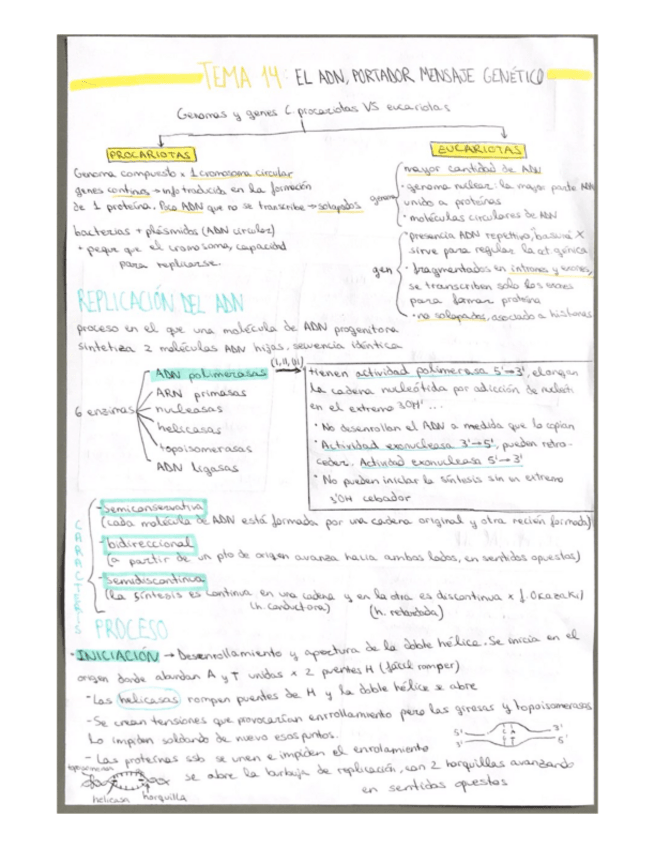 TEMA 14: EL ADN, PORTADOR MENSAJE GENÉTICO
Genomas y genes C. procariotas VS eucariotas
PROCARIOTAS
Genoma compuesto x 1 cromosoma circular
genes continuos → info traducida en la formación
de 1 proteína. Poco ADN que no se transcribe → solapados
bacterias + plásmidos (ADN circular)
• peque que el cromosoma, capacidad
para replicarse.
EUCARIOTAS
genoma
mayor cantidad de ADN
• genoma nuclear: la mayor parte ADN
unido a proteínas
• moléculas circulares de ADN
gen
• presencia ADN repetitivo, basura X
sirve para regular la act génica
• fragmentados en intrones y exones,
se transcriben solo los exones
para formar proteína
• no solapados, asociado a histonas
REPLICACIÓN DEL ADN
proceso en el que una molécula de ADN progenitora
sintetiza 2 moléculas ADN hijas, secuencia idéntica
6 enzimas
ADN polimerasas
ARN primasas
nucleasas
helicasas
topoisomerasas
ADN ligasas
(I, II, III)
tienen actividad polimerasa 5'→3', elongan
la cadena nucleótida por adicción de nucleoti
en el extremo 3'OH' ...
• No desenrollan el ADN a medida que lo copian
• Actividad exonucleasa 3'→5', pueden retro-
ceder. Actividad exonucleasa 5'→3'
• No pueden iniciar la síntesis sin un extremo
3'OH cebador
CARACTERIS
- Semiconservativa
(cada molécula de ADN está formada por una cadena original y otra recién formada)
- bidireccional
(a partir de un pto de origen avanza hacia ambos lados, en sentidos opuestos)
- Semidiscontinua
(la síntesis es continua en una cadena y en la otra es discontinua x f. Okazaki)
(h. conductora) (h. retardada)
PROCESO
• INICIACIÓN → Desenrollamiento y apertura de la doble hélice. Se inicia en el
origen donde abundan A y T unidas x 2 puentes H (fácil romper)
- Las helicasas rompen puentes de H y la doble hélice se abre
- Se crean tensiones que provocarían enrrollamiento pero las girasas y topoisomerasas
lo impiden soldando de nuevo esos puntos.
- Las proteínas ssb se unen e impiden el enrolamiento
se abre la burbuja de replicación, con 2 horquillas avanzando
en sentidos opuestos
5' 3'
3' 5'
topoisomerasa
helicasa horquilla